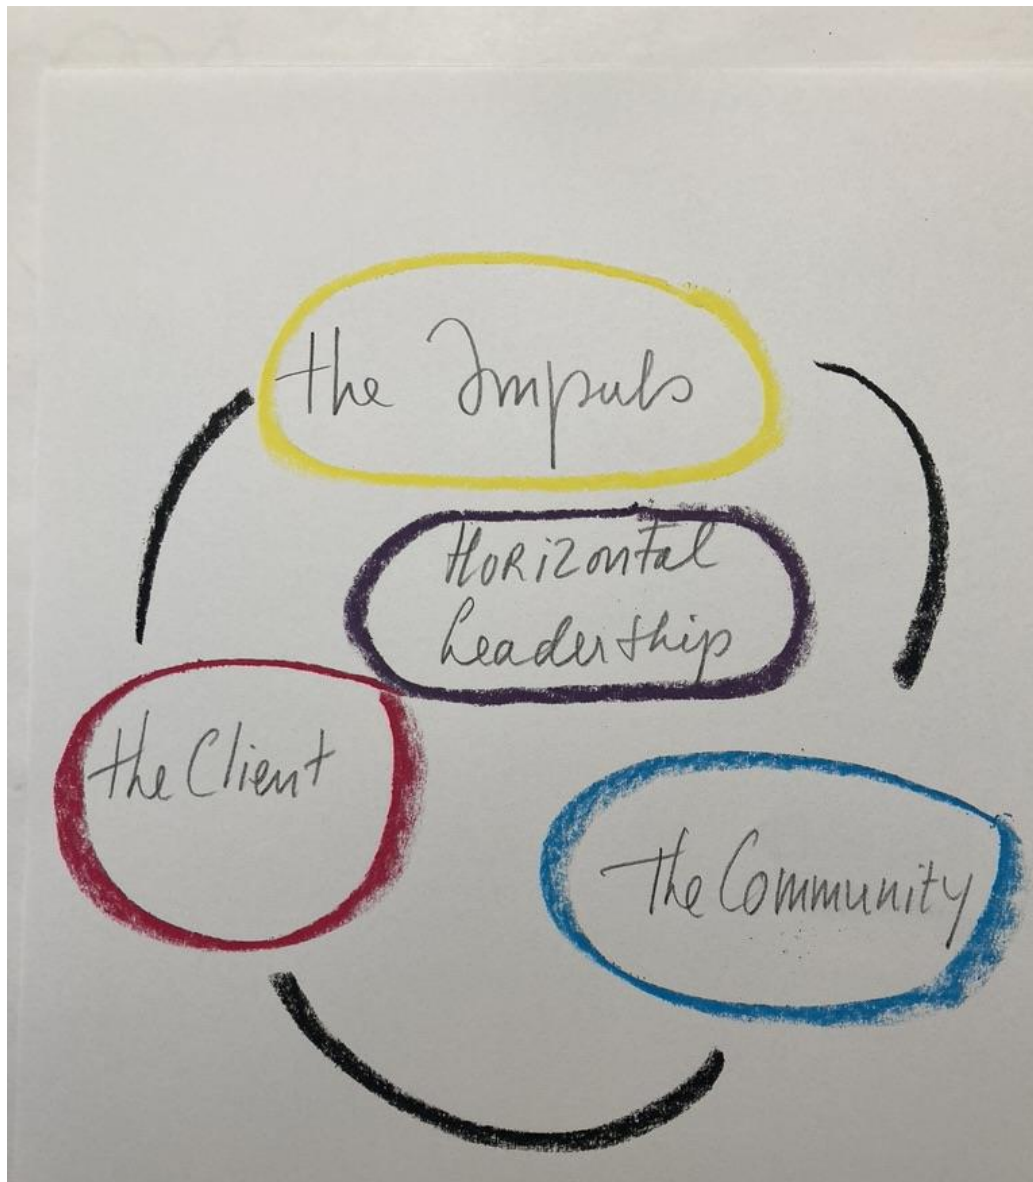 the Impuls
Horizontal
Leadership
the Client
The Community